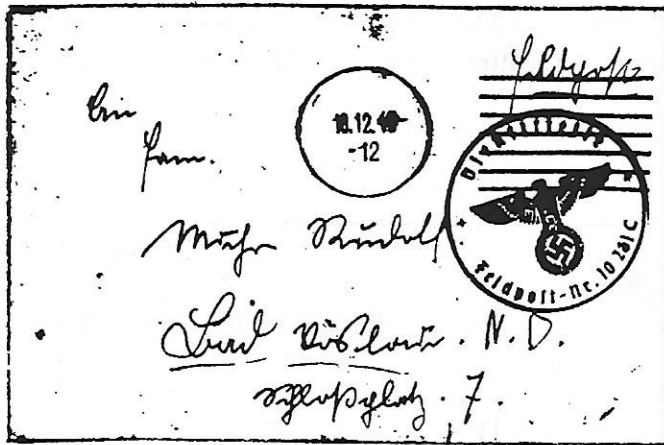 Feldpost
18.12.40
-12
Dienststelle
Feldpost-Nr. 10 281 C
An
Fam.
Rudolf
Bad Vöslau. N.D.
Schloßplatz. 7.